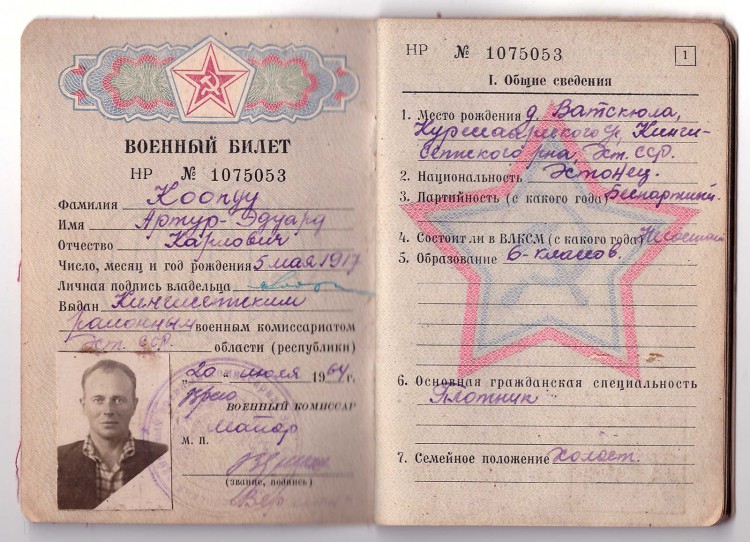 ВОЕННЫЙ БИЛЕТ
НР № 1075053
Фамилия Коопуу
Имя Артур-Эдуард
Отчество Карлович
Число, месяц и год рождения 5 мая 1917
Личная подпись владельца
Выдан Кингисепским
районным военным комиссариатом
Эст. ССР. области (республики)
„20 " июля 1964 г.
ВОЕННЫЙ КОМИССАР
майор
М. П.
(звание, подпись)
НР № 1075053
1
I. Общие сведения
1. Место рождения д. Ватскюла,
Кинги-
сеппского р-на, Эст. ССР.
2. Национальность Эстонец.
3. Партийность (с какого года) Беспартийн.
4. Состоит ли в ВЛКСМ (с какого года)
5. Образование 6-классов.
6. Основная гражданская специальность
Плотник
7. Семейное положение Холост.